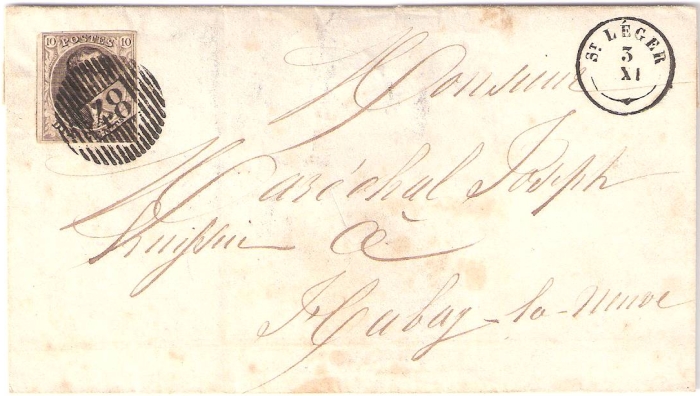 10 POSTES 10
48
ST LÉGER
3
XI
Monsieur
Maréchal Joseph
huissier à
Habay-la-neuve